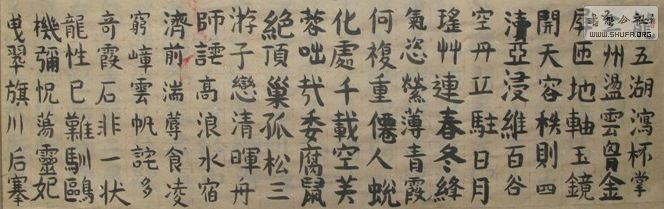 五湖瀉杯掌
州盪雲胷金
屏匝地軸玉鏡
開天容秩則四
瀆亞浸維百谷
空丹丘駐日月
瑤艸連春冬絳
氣恣縈薄青霞
何複重僊人蛻
化處千載空芙
蓉咄哉委腐鼠
絕頂巢孤松三
游子戀清暉舟
師諈高浪水宿
濟前湍蓐食凌
窮嶂雲帆詫多
奇霞石非一狀
龍性巳難馴鷗
機彌怳蕩靈妃
曳翠旗川后搴
WWW.SHUFA.ORG